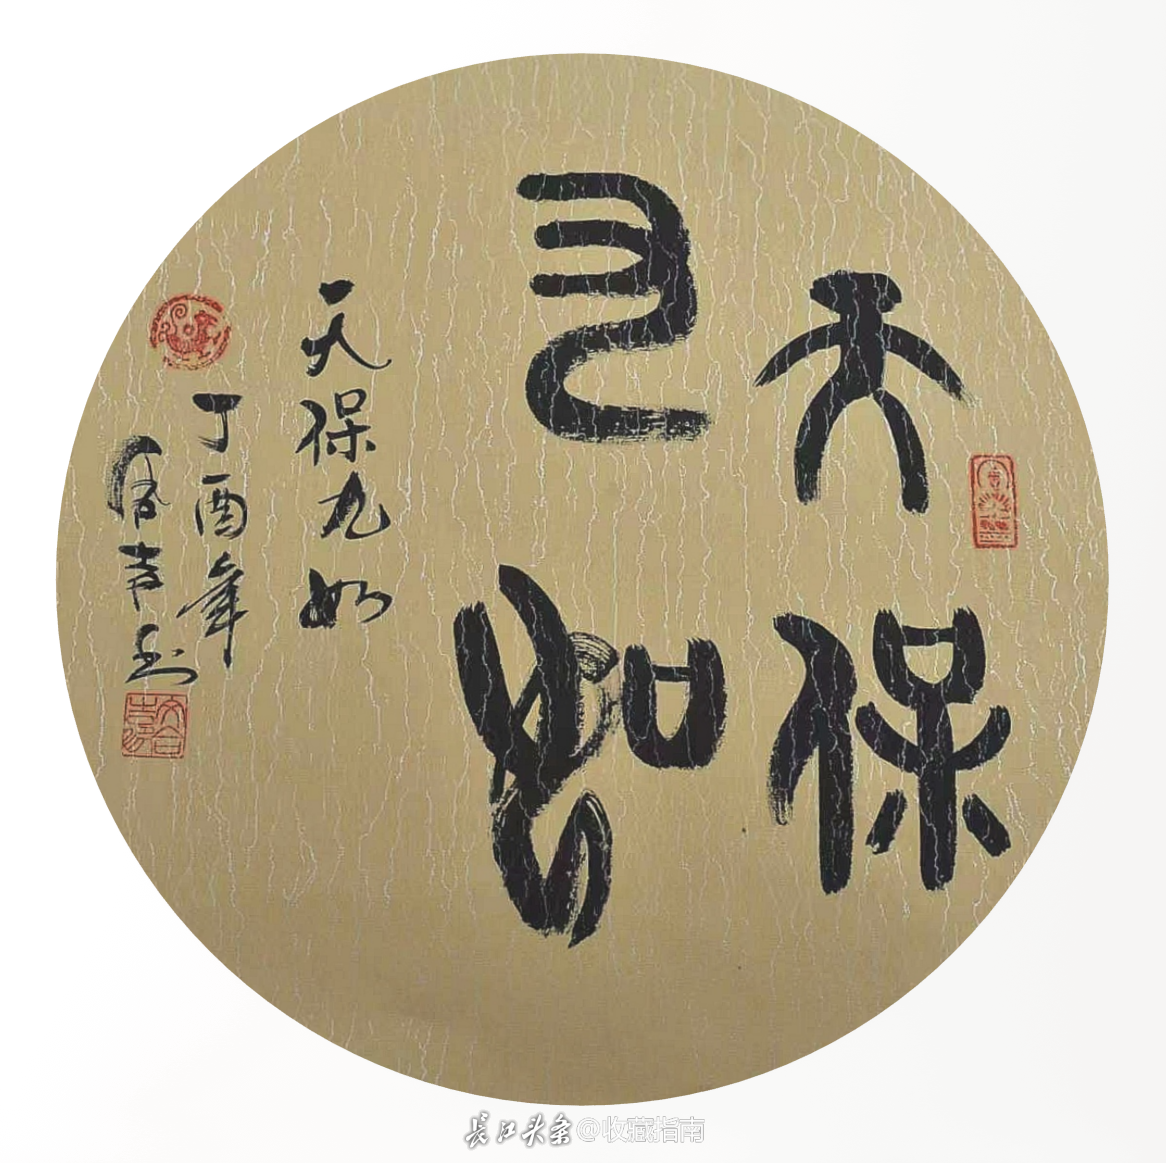 天保
九如
天保九如
丁酉年
长江头条@收藏指南